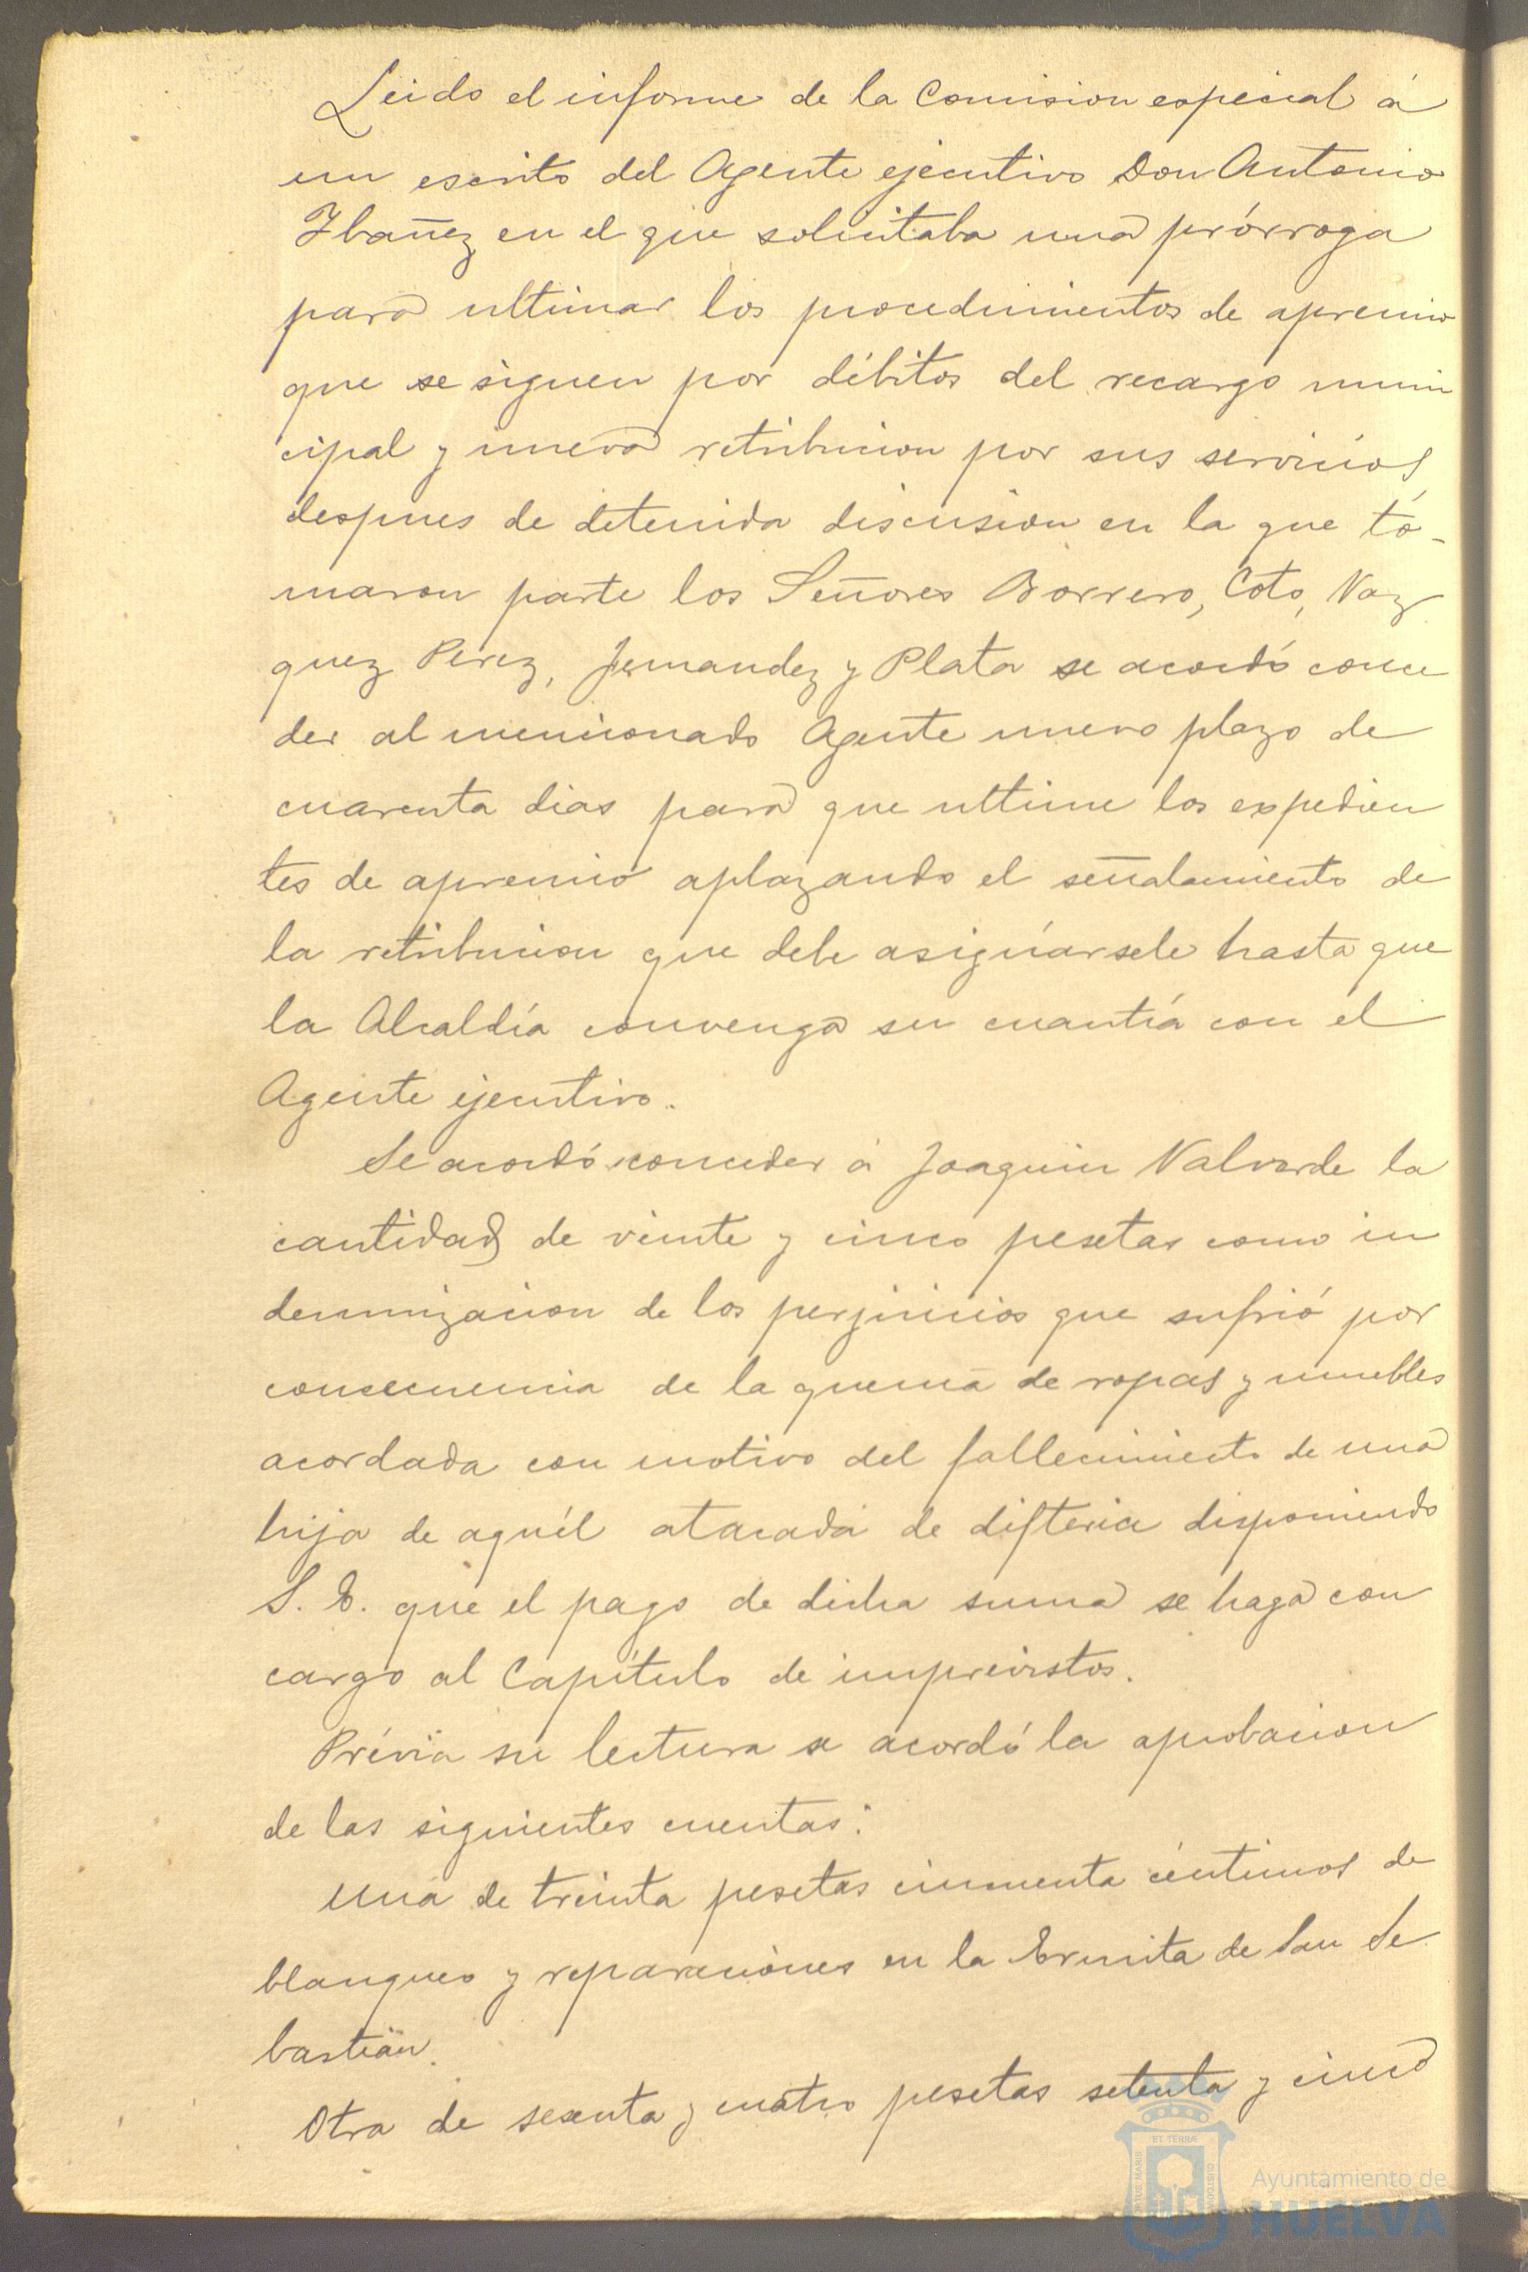 Leido el informe de la Comision especial á
un escrito del Agente ejecutivo Don Antonio
Ibañez en el que solicitaba una prórroga
para ultimar los procedimientos de apremio
que se siguen por débitos del recargo muni
cipal y nueva retribucion por sus servicios
despues de detenida discusion en la que to-
maron parte los Señores Borrero, Coto, Vaz
quez Perez, Jernandez y Plata se acordó conce
der al mencionado Agente nuevo plazo de
cuarenta dias para que ultime los expedien
tes de apremio aplazando el señalamiento de
la retribucion que debe asignársele hasta que
la Alcaldía convenga su cuantía con el
Agente ejecutivo.
Se acordó conceder á Joaquin Valverde la
cantidad de veinte y cinco pesetas como in
demnizacion de los perjuicios que sufrió por
consecuencia de la quema de ropas y muebles
acordada con motivo del fallecimiento de una
hija de aquél atacada de difteria disponiendo
S. E. que el pago de dicha suma se haga con
cargo al Capítulo de imprevistos.
Prévia su lectura se acordó la aprobacion
de las siguientes cuentas:
Una de treinta pesetas cincuenta céntimos de
blanqueo y reparaciones en la Ermita de San Se
bastian.
Otra de sesenta y cuatro pesetas setenta y cinco
ET TERRÆ
PORTUS MARIS
CUSTODIA
Ayuntamiento de
HUELVA